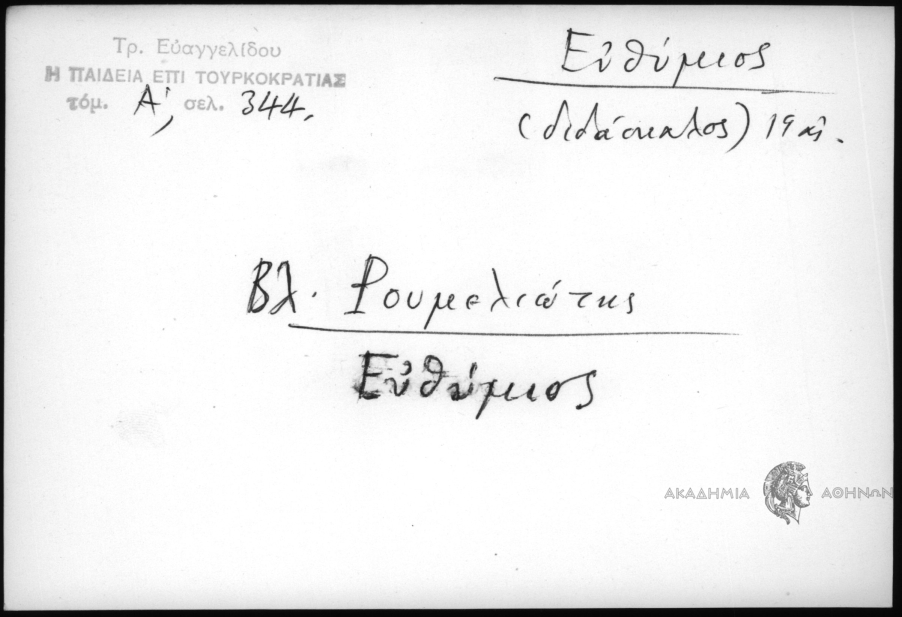 Τρ. Εὐαγγελίδου
Η ΠΑΙΔΕΙΑ ΕΠΙ ΤΟΥΡΚΟΚΡΑΤΙΑΣ
τόμ. Α', σελ. 344.
Εὐθύμιος
(διδάσκαλος) 19 αἰ.
Βλ. Ρουμελιώτης
Εὐθύμιος
ΑΚΑΔΗΜΙΑ ΑΘΗΝΩΝ